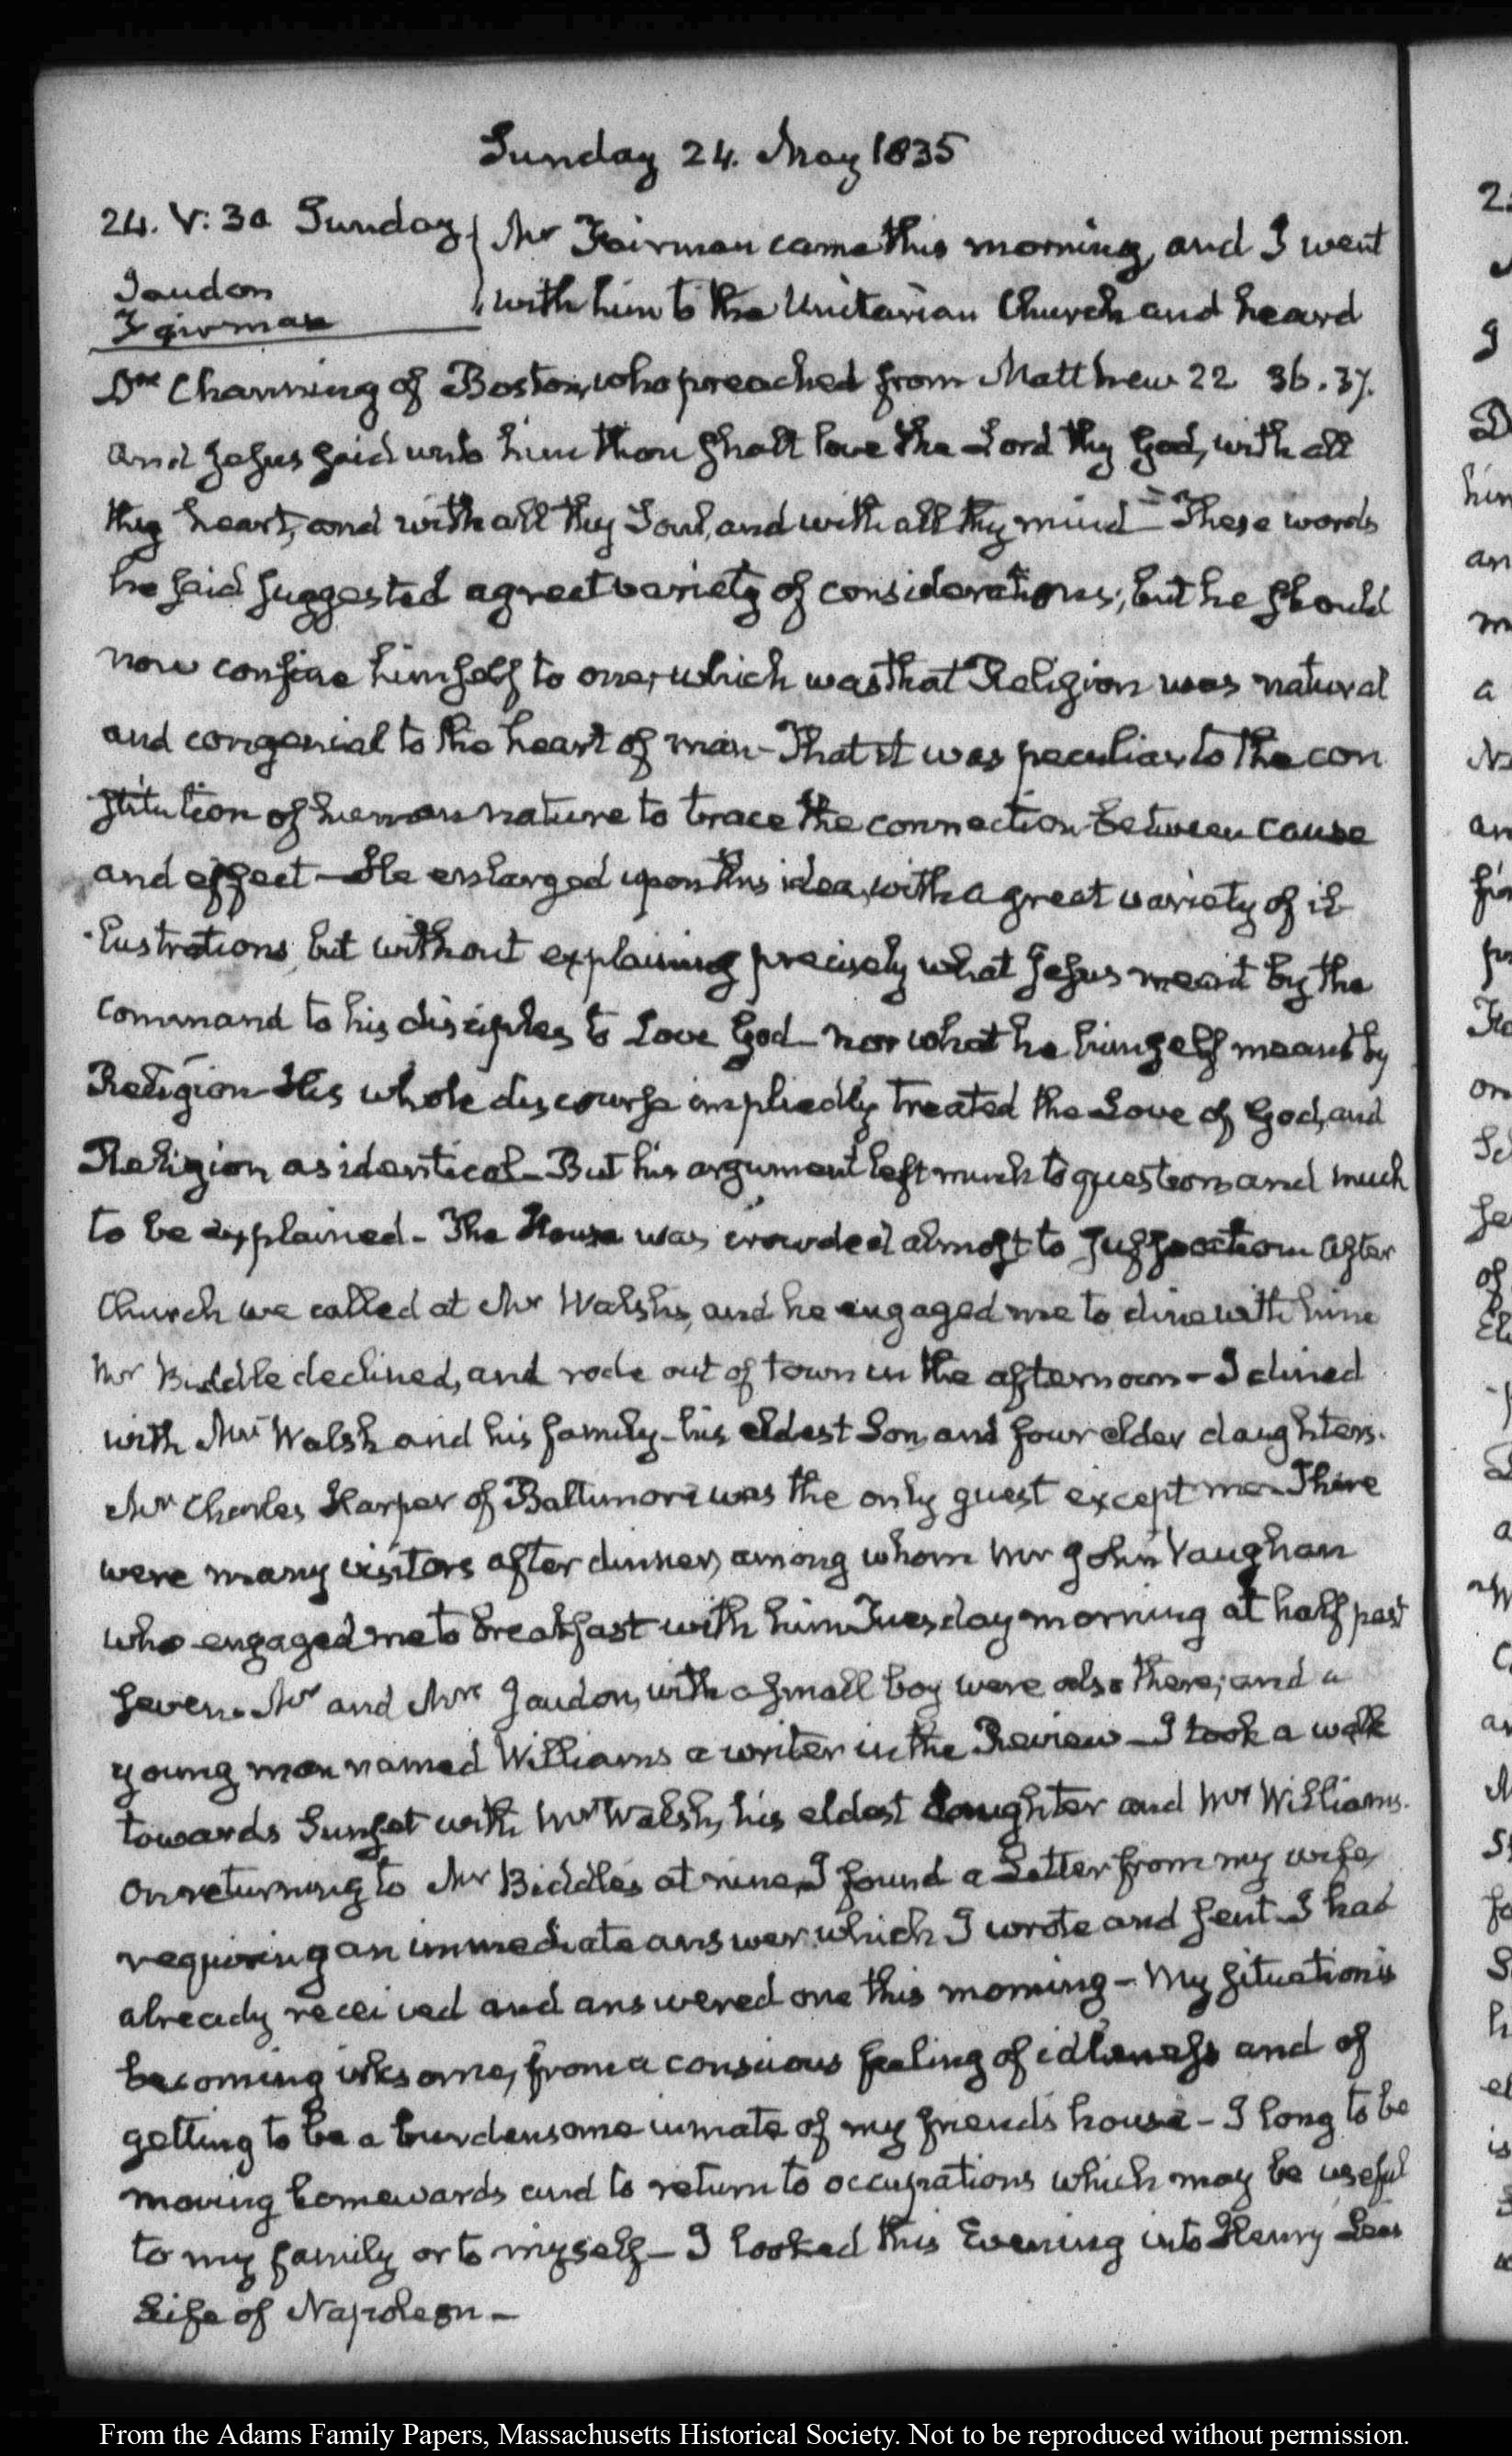 Sunday 24. May 1835
24. V: 30 Sunday
Jaudon
Fairman
Mr Fairman came this morning, and I went
with him to the Unitarian Church and heard
Dr Channing of Boston, who preached from Matthew 22 36.37.
and Jesus said unto him thou shalt love the Lord thy God, with all
thy heart, and with all thy Soul, and with all thy mind — These words
he said suggested a great variety of considerations; but he should
now confine himself to one, which was that Religion was natural
and congenial to the heart of man — That it was peculiar to the con
stitution of human nature to trace the connection between cause
and effect — He enlarged upon this idea, with a great variety of il-
lustrations, but without explaining precisely what Jesus meant by the
command to his disciples to Love God — nor what he himself meant by
Religion — His whole discourse impliedly treated the Love of God, and
Religion as identical — But his argument left much to question and much
to be explained — The House was crowded almost to suffocation After
Church we called at Mr Walsh's, and he engaged me to dine with him
Mr Biddle declined, and rode out of town in the afternoon — I dined
with Mr Walsh and his family — his eldest Son, and four elder daughters.
Mr Charles Harper of Baltimore was the only guest except me. There
were many visitors after dinner, among whom Mr John Vaughan
who engaged me to breakfast with him Tuesday morning at half past
seven. Mr and Mrs Jaudon, with a small boy were also there; and a
young man named Williams a writer in the Review — I took a walk
towards Sunset with Mr Walsh, his eldest daughter and Mr Williams.
On returning to Mr Biddle's at nine, I found a Letter from my wife,
requiring an immediate answer which I wrote and sent. I had
already received and answered one this morning — My situation is
becoming irksome, from a conscious feeling of idleness and of
getting to be a burdensome inmate of my friend's house — I long to be
moving homewards and to return to occupations which may be useful
to my family or to myself — I looked this Evening into Henry Lee's
Life of Napoleon —
From the Adams Family Papers, Massachusetts Historical Society. Not to be reproduced without permission.